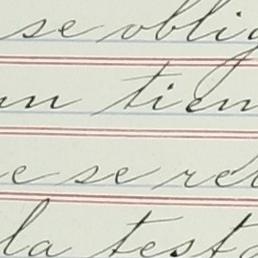 se oblig
un tien
e se re
la test